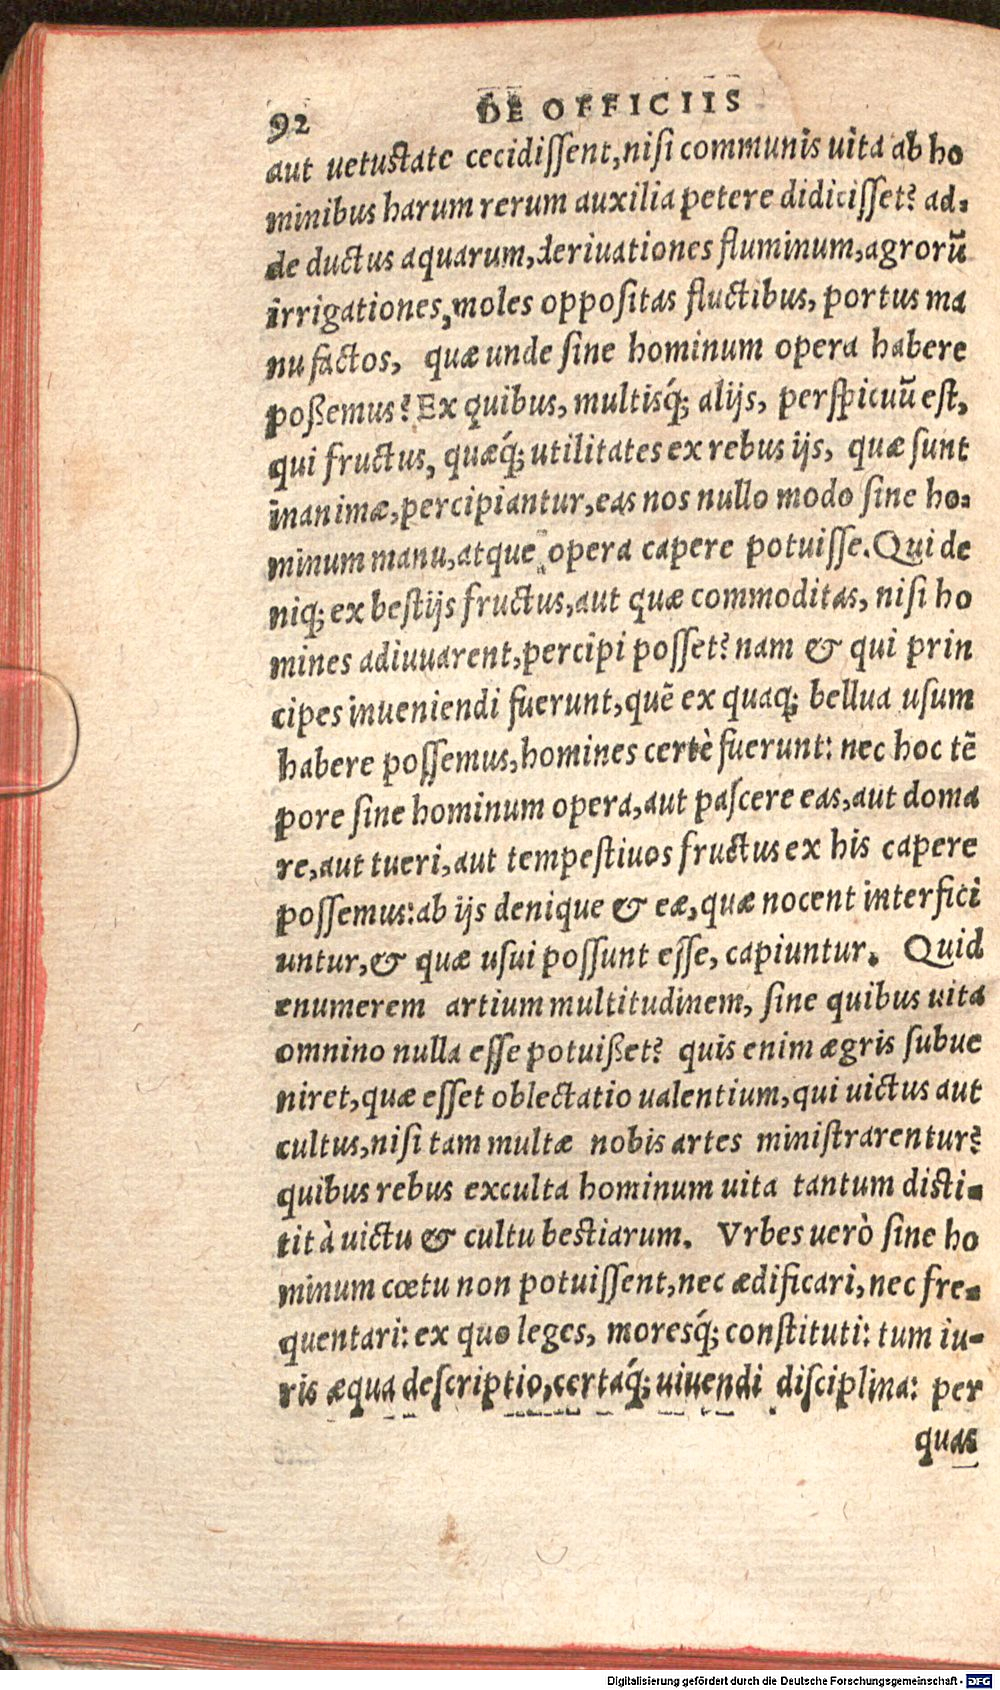 92 DE OFFICIIS
aut uetustate cecidissent, nisi communis uita ab ho
minibus harum rerum auxilia petere didicisset? ad-
de ductus aquarum, deriuationes fluminum, agrorũ
irrigationes, moles oppositas fluctibus, portus ma
nu factos, quæ unde sine hominum opera habere
poßemus? Ex quibus, multisq́; alijs, perspicuũ est,
qui fructus, quæq́; utilitates ex rebus ijs, quæ sunt
inanimæ, percipiantur, eas nos nullo modo sine ho-
minum manu, atque opera capere potuisse. Qui de
niq; ex bestijs fructus, aut quæ commoditas, nisi ho
mines adiuuarent, percipi posset? nam & qui prin
cipes inueniendi fuerunt, quẽ ex quaq; bellua usum
habere possemus, homines certè fuerunt: nec hoc tẽ
pore sine hominum opera, aut pascere eas, aut doma
re, aut tueri, aut tempestiuos fructus ex his capere
possemus: ab ijs denique & eæ, quæ nocent interfici
untur, & quæ usui possunt esse, capiuntur. Quid
enumerem artium multitudinem, sine quibus uita
omnino nulla esse potuißet? quis enim ægris subue
niret, quæ esset oblectatio ualentium, qui uictus aut
cultus, nisi tam multæ nobis artes ministrarentur?
quibus rebus exculta hominum uita tantum disti-
tit à uictu & cultu bestiarum. Vrbes uerò sine ho
minum cœtu non potuissent, nec ædificari, nec fre-
quentari: ex quo leges, moresq́; constituti: tum iu-
ris æqua descriptio, certaq́; uiuendi disciplina: per
quas
Digitalisierung gefördert durch die Deutsche Forschungsgemeinschaft - DFG